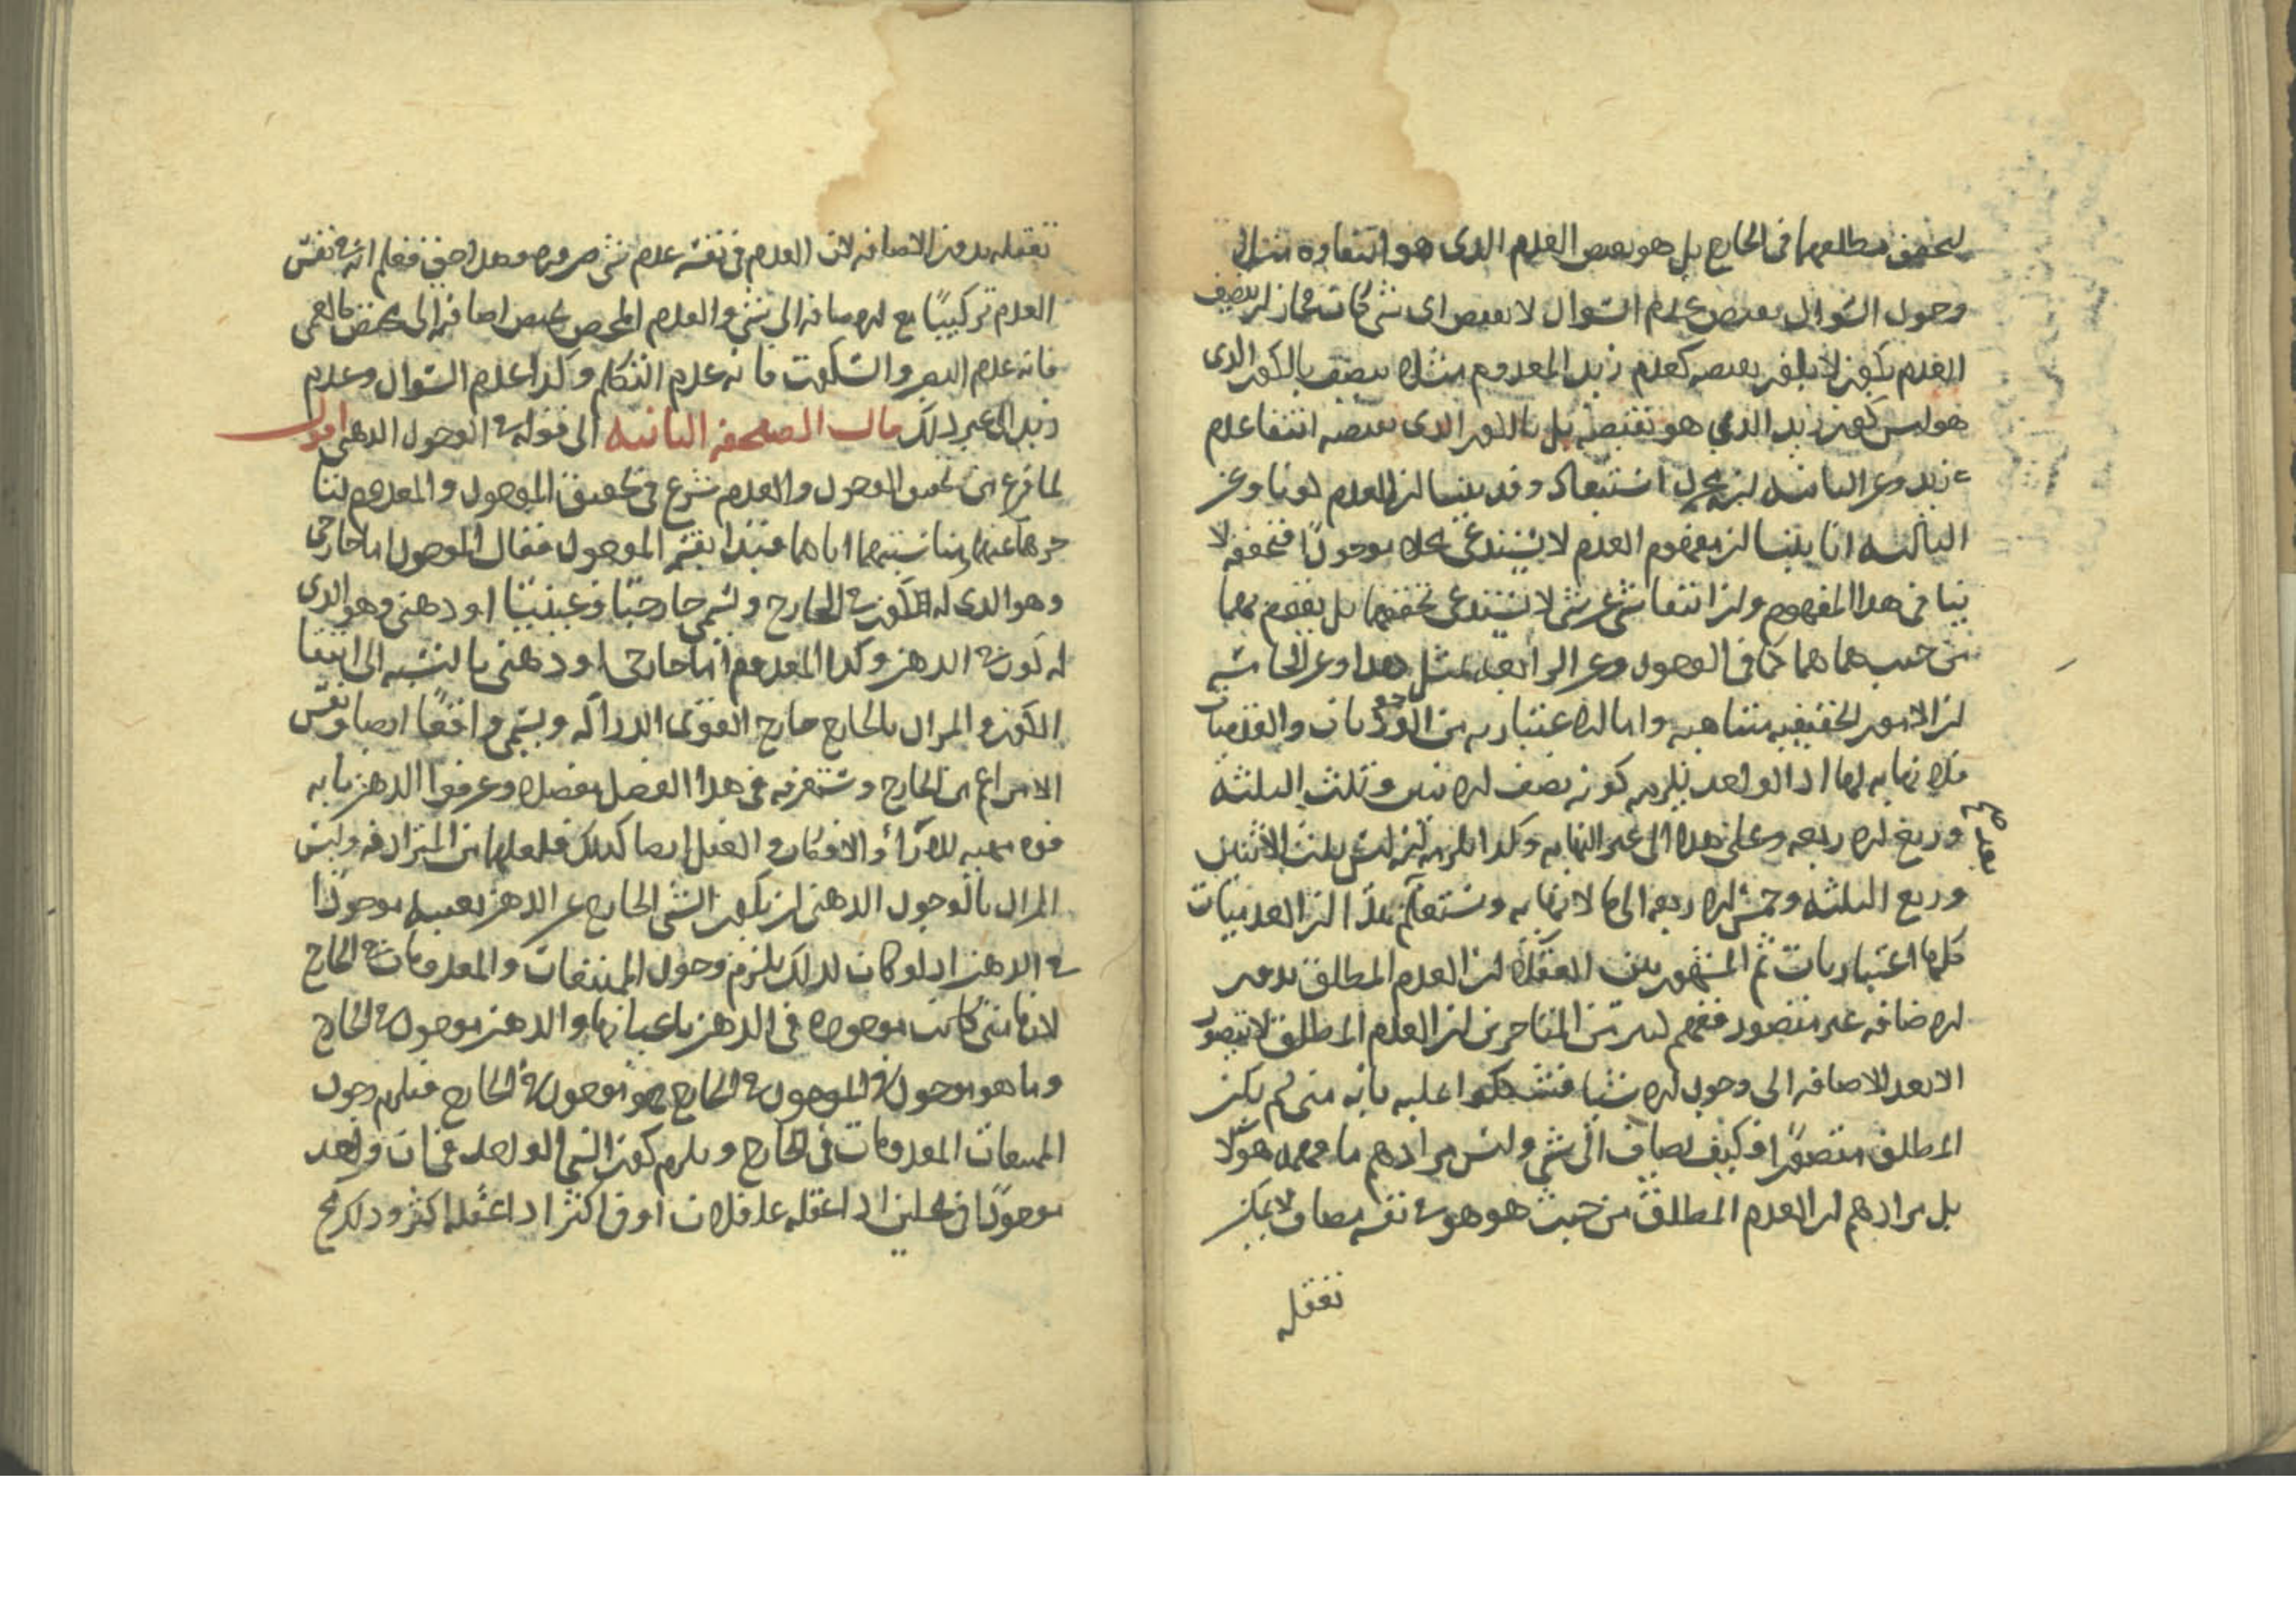 يتحقق مطلقهما في الخارج بل هو نقيض العدم الذي هو انتفاؤه مثال
وجود السواد نقيض عدم السواد لا نقيض اي شي كان فجاز ان يتصف
العدم بكون لا يكون نقيضه كعدم زيد المعدوم مثلا يتصف بالكون الذي
هو ليس كون زيد الذي هو نقيضه بل بالكون الذي نقيضه انتفا عدم
زيد وعن الثانية انه مجرد استبعاد وقد بينا ان للعدم كونا وعن
الثالثة انا بينا ان مفهوم العدم لا يستدعي محلا موجودا فتحققه لا
ينافي هذا المفهوم وان انتفا شي عن شي لا يستدعي تحققهما بل تقدم
من حيث هما هما كما في الوجود وعن الرابعة بمثل هذا وعن الخامسة
ان الامور الحقيقية متناهية واما الاعتبارية من الوجوديات والعدميات
فلا نهاية لها اذ الواحد يلزمه كونه نصف الاثنين وثلث الثلثة
وربع الاربعة وعلى هذا الى غير النهاية وكذا يلزمه انه ليس بثلث الاثنين
وربع الثلثة وخمس الاربعة الى ما لا نهاية وستعلم ان العدميات
كلها اعتباريات ثم المشهور بين العقلا ان العدم المطلق بدون
الاضافة غير متصور ففهم كثير من المتاخرين ان العدم المطلق لا يتصور
الا بعد الاضافة الى وجود الاشيا فتشككوا عليه بانه متى لم يكن
المطلق متصورا فكيف يضاف الى شي وليس مرادهم ما فهمه هولا
بل مرادهم ان العدم المطلق من حيث هو هو في نفسه مضاف لا يمكن
تعقله
تعقله بدون الاضافة لان العدم في نفسه عدم شي ضرورة وهذا حق فعلم انه في نفس
العدم تركيبا مع الاضافة الى شي والعدم المخصوص يختص اضافته الى مخصص كالعمى
فانه عدم البصر والسكوت فانه عدم التكلم وكذا عدم السواد وعدم
زيد الى غير ذلك قال الصحيفة الثانية الى قوله في الوجود الذهني اقول
لما فرغ من تحقيق الوجود والعدم شرع في تحقيق الموجود والمعدوم
اياهما فبدا بقسمة الموجود فقال الموجود اما خارجي
وهو الذي له الكون في الخارج ويسمى خارجيا وعينيا او ذهني وهو الذي
له كون في الذهن وكذا المعدوم اما خارجي او ذهني بالنسبة الى انتفا
الكون والمراد بالخارج خارج القوى الدراكة ويسمى واقعا ايضا ونفس
الامر اعم من الخارج وستعرفه في هذا الفصل مفصلا وعرفوا الذهن بانه
قوة مهيئة للآراء والافكار والعقل ايضا كذلك فلعلهما من المترادفة وليس
المراد بالوجود الذهني ان يكون الشي الخارج عن الذهن بعينه موجودا
في الذهن اذ لو كان كذلك يلزم وجود الممتنعات والمعدومات في الخارج
لانها متى كانت موجودة في الذهن باعيانها والذهن موجود في الخارج
وما هو موجود في الموجود في الخارج فهو موجود في الخارج فيلزم وجود
الممتنعات المعدومات في الخارج ويلزم كون الشي الواحد في آن واحد
موجودا في محلين اذا عقله عاقلان او في اكثر اذا عقله اكثر وذلك مح